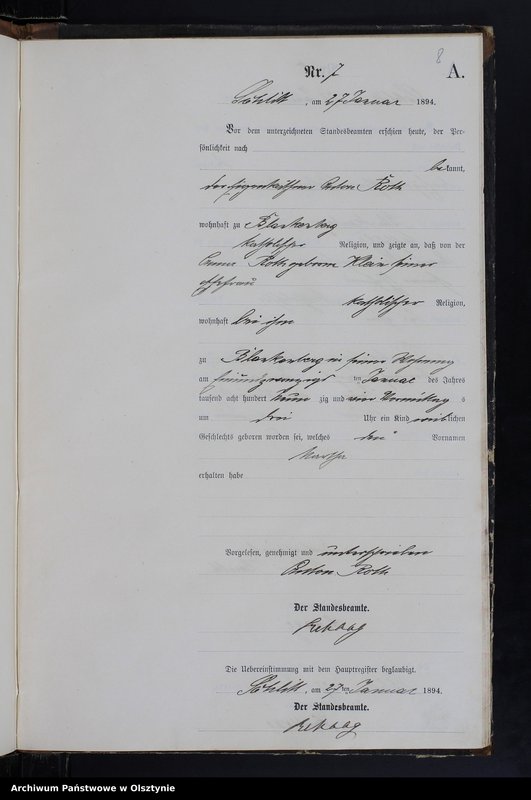 8
Nr. 7 A.
Schlitt, am 27 Januar 1894.
Vor dem unterzeichneten Standesbeamten erschien heute, der Per-
sönlichkeit nach
bekannt,
der Eigenkäthner Anton Roth
wohnhaft zu Blankenberg
katholischer Religion, und zeigte an, daß von der
Anna Roth geborene Klein seiner
Ehefrau
katholischer Religion,
wohnhaft bei ihm
zu Blankenberg in seiner Wohnung
am ten Januar des Jahres
tausend acht hundert neun zig und vier Vormittag s
um drei Uhr ein Kind weiblichen
Geschlechts geboren worden sei, welches den Vornamen
Martha
erhalten habe
Vorgelesen, genehmigt und unterschrieben
Anton Roth
Der Standesbeamte.
Die Uebereinstimmung mit dem Hauptregister beglaubigt.
Schlitt, am 27 ten Januar 1894.
Der Standesbeamte.
Archiwum Państwowe w Olsztynie